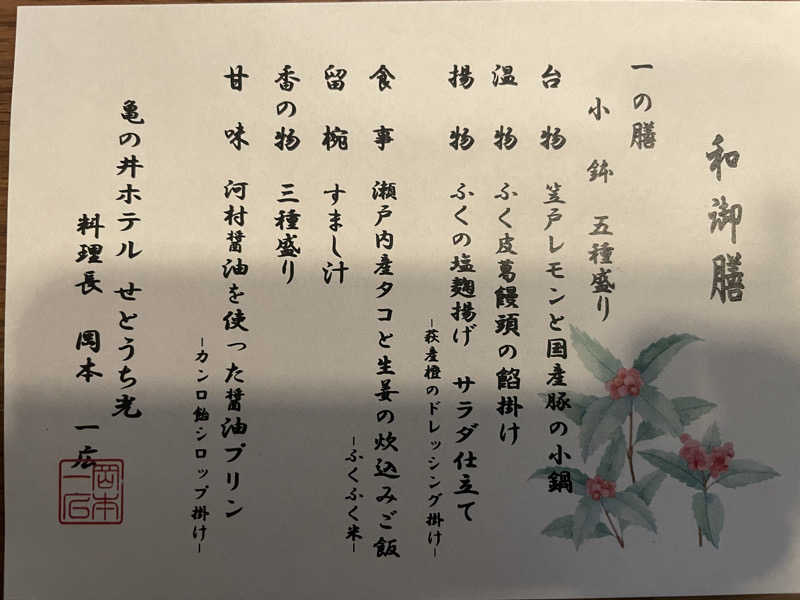 和御膳
一の膳
小鉢 五種盛り
台物 笠戸レモンと国産豚の小鍋
温物 ふく皮葛饅頭の餡掛け
揚物 ふくの塩麹揚げ サラダ仕立て
−萩産橙のドレッシング掛け−
食事 瀬戸内産タコと生姜の炊込みご飯
−ふくふく米−
留椀 すまし汁
香の物 三種盛り
甘味 河村醤油を使った醤油プリン
−カンロ飴シロップ掛け−
亀の井ホテル せとうち光
料理長 岡本 一広
岡本
一広